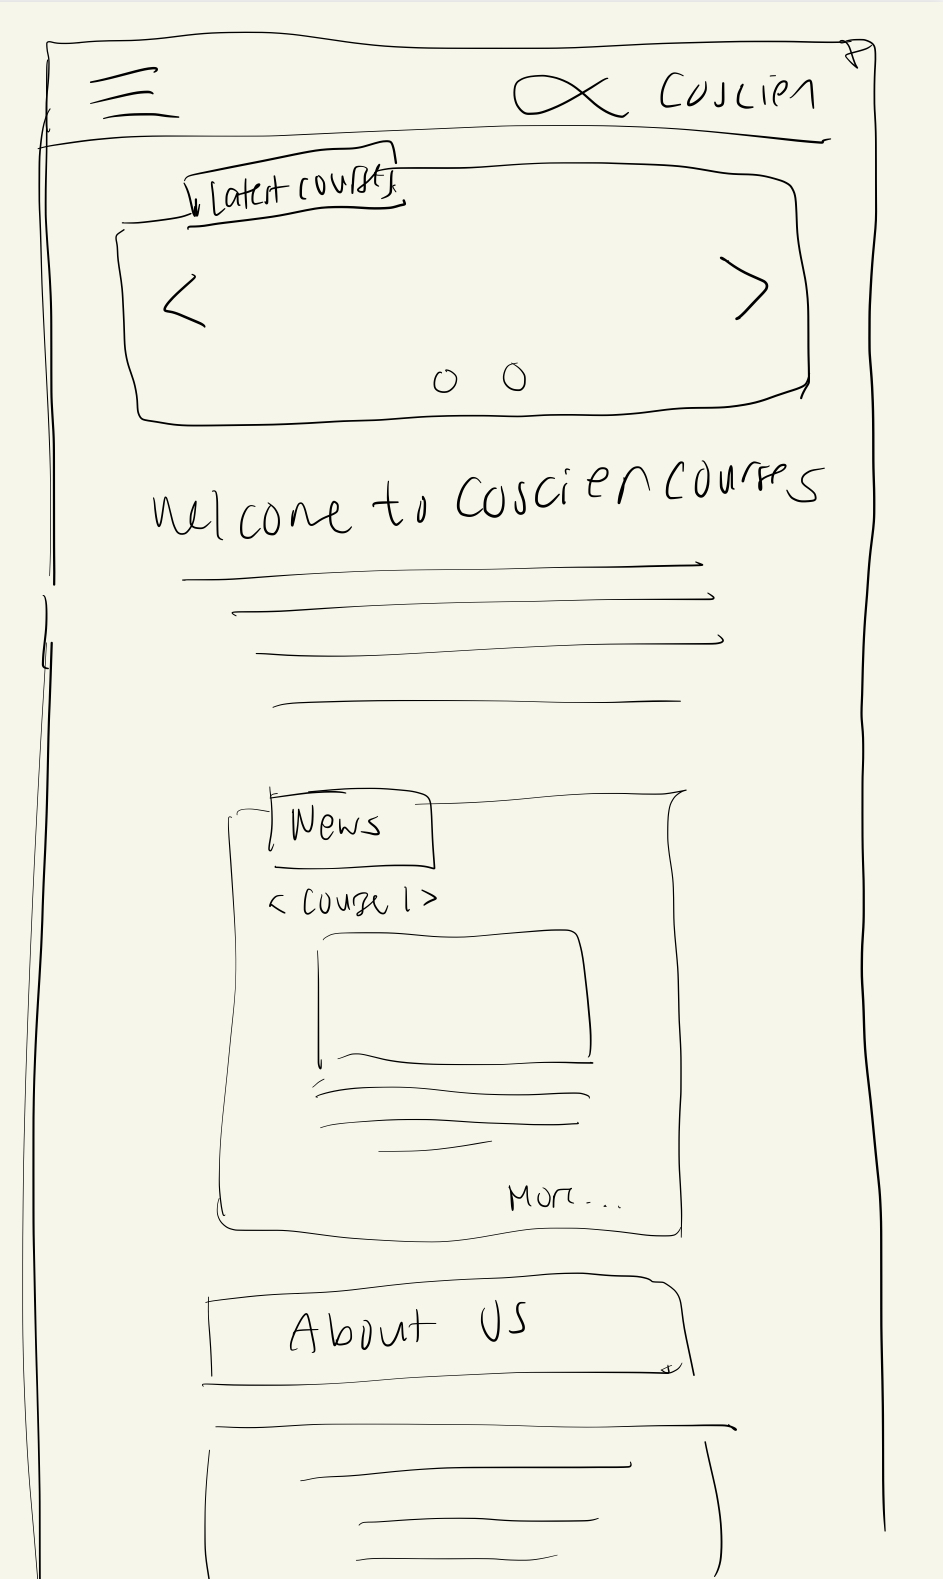 Coscien
Latest courses
<
>
Welcome to Coscien courses
News
< Course 1 >
More...
About US